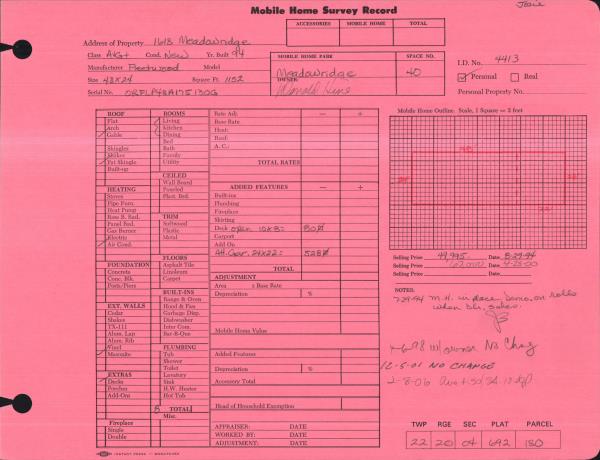 Josie
Mobile Home Survey Record
ACCESSORIES MOBILE HOME TOTAL
Address of Property 1618 Meadowridge
Class AVG+ Cond. New Yr. Built 94
Manufacturer Fleetwood Model
Size 48X24 Square Ft. 1152
Serial No.
MOBILE HOME PARK SPACE NO.
Meadowridge 40
OWNER:
I.D. No. 4413
Personal Real
Personal Property No.
ROOF
Flat
Arch
Gable
Shingles
Shakes
Pat Shingle
Built-up
HEATING
Stoves
Pipe Furn.
Heat Pump
Base B. Rad.
Panel Rad.
Gas Burner
Electric
Air Cond.
FOUNDATION
Concrete
Conc. Blk.
Posts/Piers
EXT. WALLS
Cedar
Shakes
TX-111
Alum. Lap
Alum. Rib
Vinyl
Masonite
EXTRAS
Decks
Porches
Add-Ons
Fireplace
Single
Double
ROOMS
Living
Kitchen
Dining
Bed
Bath
Family
Utility
CEILED
Wall Board
Paneled
Plast. Bed.
TRIM
Softwood
Plastic
Metal
FLOORS
Asphalt Tile
Linoleum
Carpet
BUILT-INS
Range & Oven
Hood & Fan
Garbage Disp.
Dishwasher
Inter Com.
Bar-B-Que
PLUMBING
Tub
Shower
Toilet
Lavatory
Sink
H.W. Heater
Hot Tub
8 TOTAL
Misc.
Rate Adj. — +
Base Rate
Heat:
Roof:
A. C.:
TOTAL RATES
ADDED FEATURES — +
Built-ins
Plumbing
Fireplace
Skirting
Deck open 10x8= 80
Carport
Add On
Att. Gar. 24X22= 528
TOTAL
ADJUSTMENT
Area x Base Rate
Depreciation %
Mobile Home Value
Added Features
Depreciation %
Accessory Total
Head of Household Exemption
APPRAISER: DATE
WORKED BY: DATE
ADJUSTMENT: DATE
Mobile Home Outline. Scale, 1 Square = 2 feet
48'
24'
Selling Price 49,995 Date 8-29-94
Selling Price Date 4-25-00
Selling Price Date
NOTES:
No Chng
12-5-01 NO CHANGE
2-8-06
TWP RGE SEC PLAT PARCEL
22 20 04 692 180